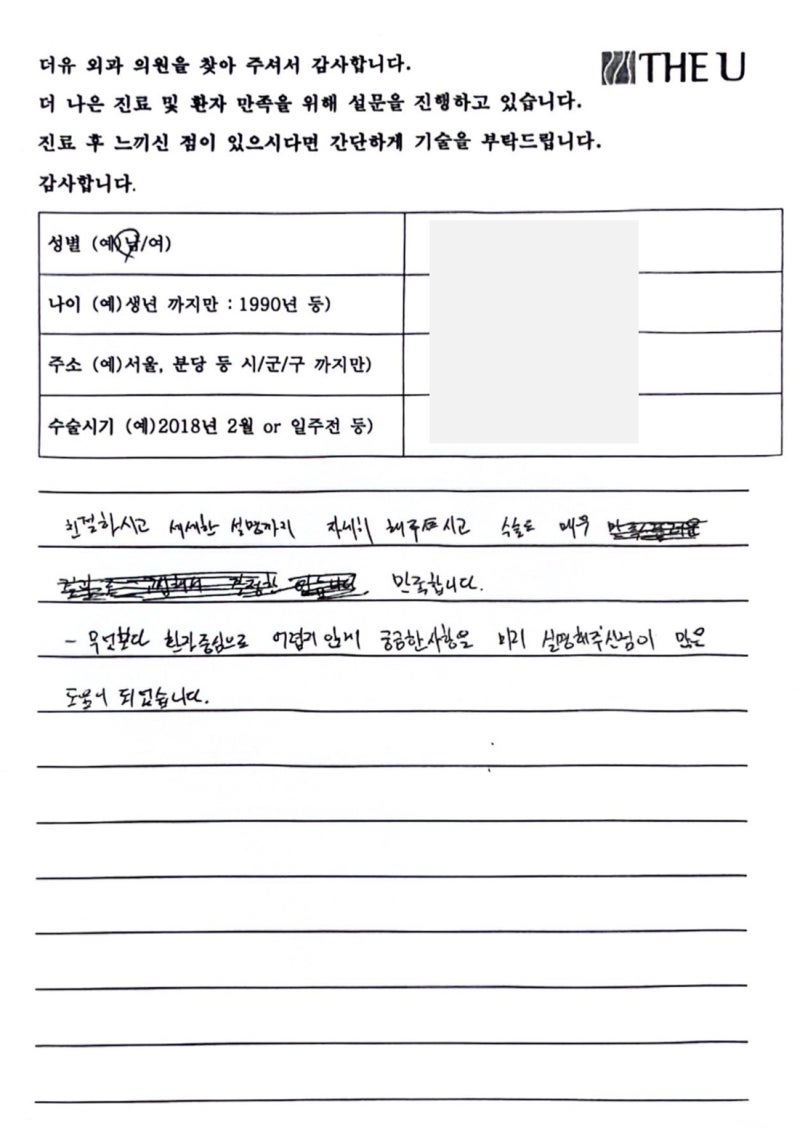 더유 외과 의원을 찾아 주셔서 감사합니다.
THE U
더 나은 진료 및 환자 만족을 위해 설문을 진행하고 있습니다.
진료 후 느끼신 점이 있으시다면 간단하게 기술을 부탁드립니다.
감사합니다.
성별 (예)남/여)
나이 (예)생년 까지만 : 1990년 등)
주소 (예)서울, 분당 등 시/군/구 까지만)
수술시기 (예)2018년 2월 or 일주전 등)
친절하시고 세세한 설명까지 자세히 해주시고 수술도 매우
만족합니다.
- 무엇보다 환자중심으로 어렵지 않게 궁금한사항을 미리 설명해주신점이 많은
도움이 되었습니다.